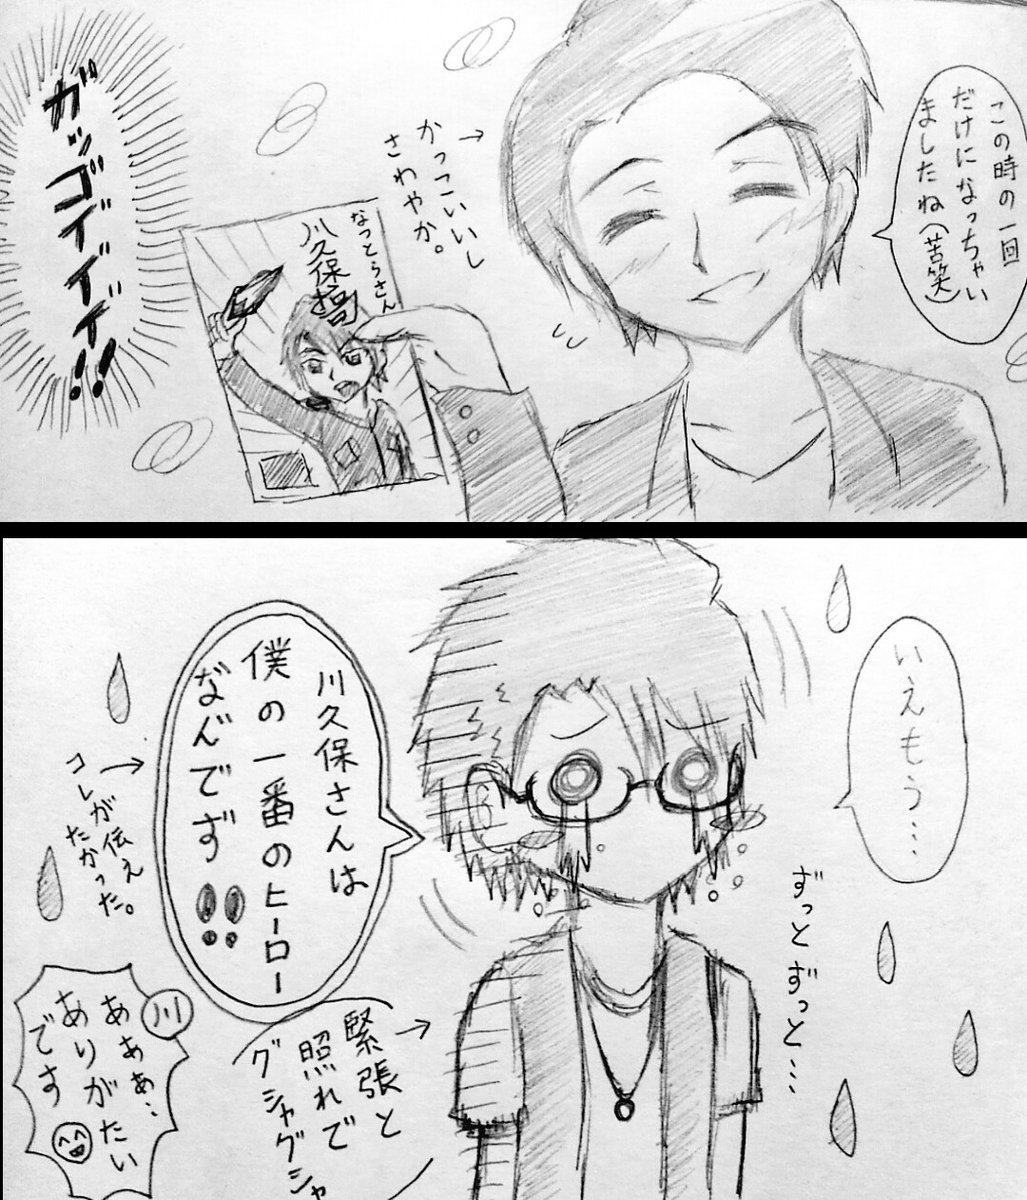 この時の一回
だけになっちゃい
ましたね(苦笑)
かっこいいし
さわやか。
なっとらさん
川久保拓司
ガッゴイイイイ!!
いえもう…
ずっとずっと…
川久保さんは
僕の一番のヒーロー
なんでず!!
コレが伝え
たかった。
緊張と
照れで
グシャグシャ
川
あああ…
ありがたい
です